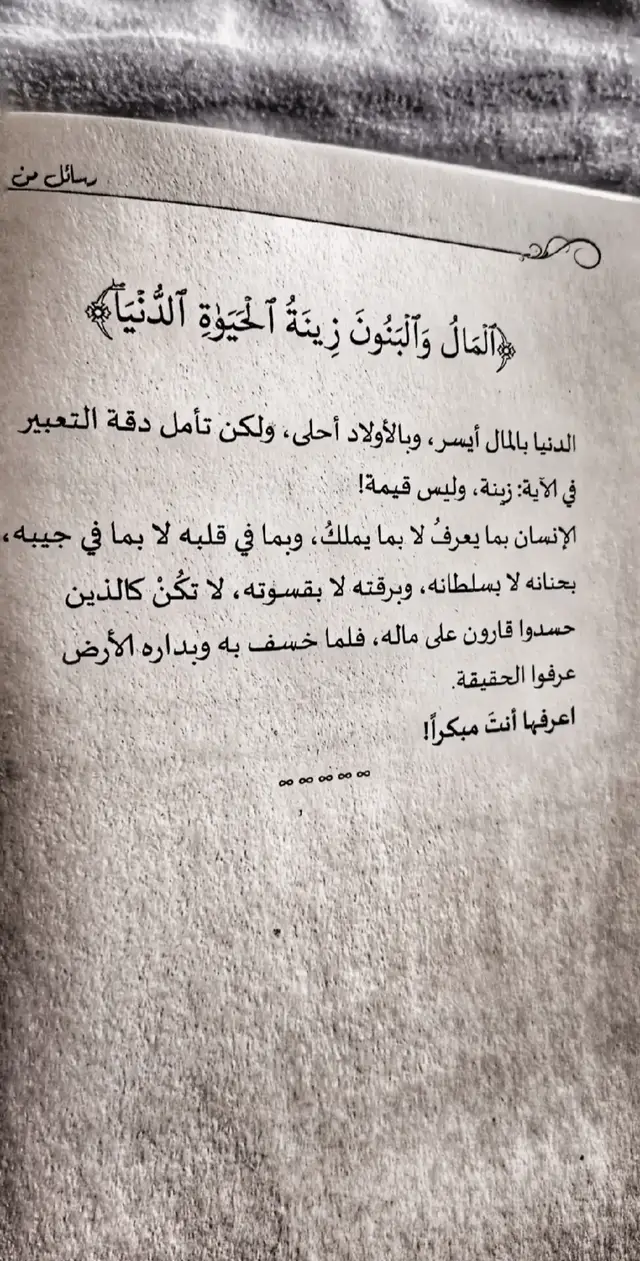 رسائل من
﴿ٱلْمَالُ وَٱلْبَنُونَ زِينَةُ ٱلْحَيَوٰةِ ٱلدُّنْيَاۖ﴾
الدنيا بالمال أيسر، وبالأولاد أحلى، ولكن تأمل دقة التعبير
في الآية: زينة، وليس قيمة!
الإنسان بما يعرفُ لا بما يملكُ، وبما في قلبه لا بما في جيبه،
بحنانه لا بسلطانه، وبرقته لا بقسوته، لا تكُنْ كالذين
حسدوا قارون على ماله، فلما خسف به وبداره الأرض
عرفوا الحقيقة.
اعرفها أنتَ مبكراً!
∞ ∞ ∞ ∞ ∞